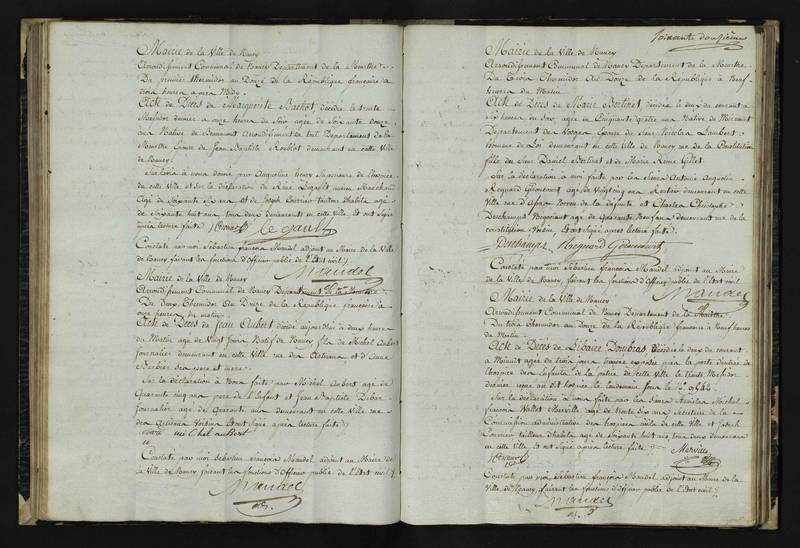 Mairie de la Ville de Nancy
Arrondissement Communal de Nancy Departement de la Meurthe
Du premier Thermidor an Douze de la Republique française a
trois heures après Midy
Acte de Décès de Margueritte Bachot, décédée le trente
Messidor dernier a onze heures du soir agée de Soixante douze
ans Native de Beaumont Arrondissement de toul Departement de la
Meurthe Epouse de Jean Baptiste Roublot demeurant en cette Ville
de Nancy
Sur la declaration de René Legault ancien Marchand
Agé de Soixante ans et de Joseph tailleur d'habits agé
de Soixante huit ans, tous deux demeurants en cette Ville et ont Signé
après lecture faite
Le gault
Constaté par moi Sébastien françois Mandel adjoint au Maire de la Ville
de Nancy, faisant les fonctions d'Officier public de l'Etat civil
Mandel
Mairie de la Ville de Nancy
Arrondissement Communal de Nancy Departement de la Meurthe
Du deux Thermidor an Douze de la Republique française a
onze heures du matin
Acte de Décès de Jean Aubert décédé aujourd'huy à deux heures
du Matin agé de Vingt Natif de Nancy fils de Michel Aubert
Journalier demeurant en cette Ville rue des Artisans et d'Anne
Barbier ses pere et mere
Sur la déclaration à Nous faite par Michel Aubert agé de
Quarante cinq ans pere de l'Enfant et Jean Baptiste
Journalier agé de Quarante ans demeurant en cette Ville rue
des Artisans Voisin et ont Signé après lecture faite
michel aubert
Constaté par moi Sébastien françois Mandel adjoint au Maire de
la Ville de Nancy, faisant les fonctions d'Officier public de l'Etat civil
Mandel
adj.
Soixante douzième
Mairie de la Ville de Nancy
Arrondissement Communal de Nancy Departement de la Meurthe
Du Trois Thermidor an Douze de la République à Neuf
heures du Matin
Acte de Décès de Marie Bertinet, décédée le deux du courant a
six heures du Soir, agée de Cinquante quatre ans Native de Mirecourt
Departement des Vosges Epouse du Sieur Nicolas Lambert
homme de Loi demeurant en cette Ville de Nancy rue de la Constitution
fille de Sieur Daniel Bertinet et de Marie Reine Gillet
Sur la déclaration à moi faite par les Sieurs Antoine Augustin
agé de Vingt cinq ans Rentier demeurant en cette
Ville rue et Charles Christophe
Deschamps Négociant agé de Quarante demeurant rue de la
constitution Voisin, et ont Signé après lecture faite
Deschamps
Constaté par moi Sébastien françois Mandel adjoint au Maire
de la Ville de Nancy, faisant les fonctions d'Officier public de l'Etat civil
Mandel
Mairie de la Ville de Nancy
Arrondissement Communal de Nancy Departement de la Meurthe
Du trois Thermidor an Douze de la République française à Neuf heures
du Matin
Acte de Décès de Libaire Doubras, décédée le deux du courant
a Minuit agée de trois jours exposée près la porte d'entrée de
l'hospice des Enfants de la patrie de cette Ville le trente Messidor
dernier reçue au dit hospice le lendemain sous le No. 9542
Sur la déclaration à nous faite par les Sieurs Michel
françois Vallet Merville agé de trente six ans Secretaire de la
Commission administrative des hospices civils de cette Ville et Joseph
tailleur d'habits agé de Soixante huit ans, tous deux demeurants
en cette Ville et ont Signé après lecture faite
Merville
Constaté par moi Sébastien françois Mandel adjoint au Maire de la
Ville de Nancy, faisant les fonctions d'Officier public de l'Etat civil
Mandel
adj.